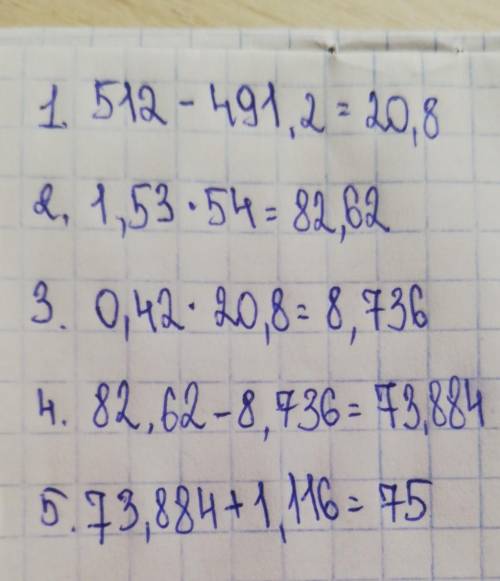 1. 512 - 491,2 = 20,8
2. 1,53 · 54 = 82,62
3. 0,42 · 20,8 = 8,736
4. 82,62 - 8,736 = 73,884
5. 73,884 + 1,116 = 75